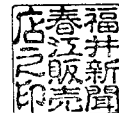 福井新聞
春江販売
店之印